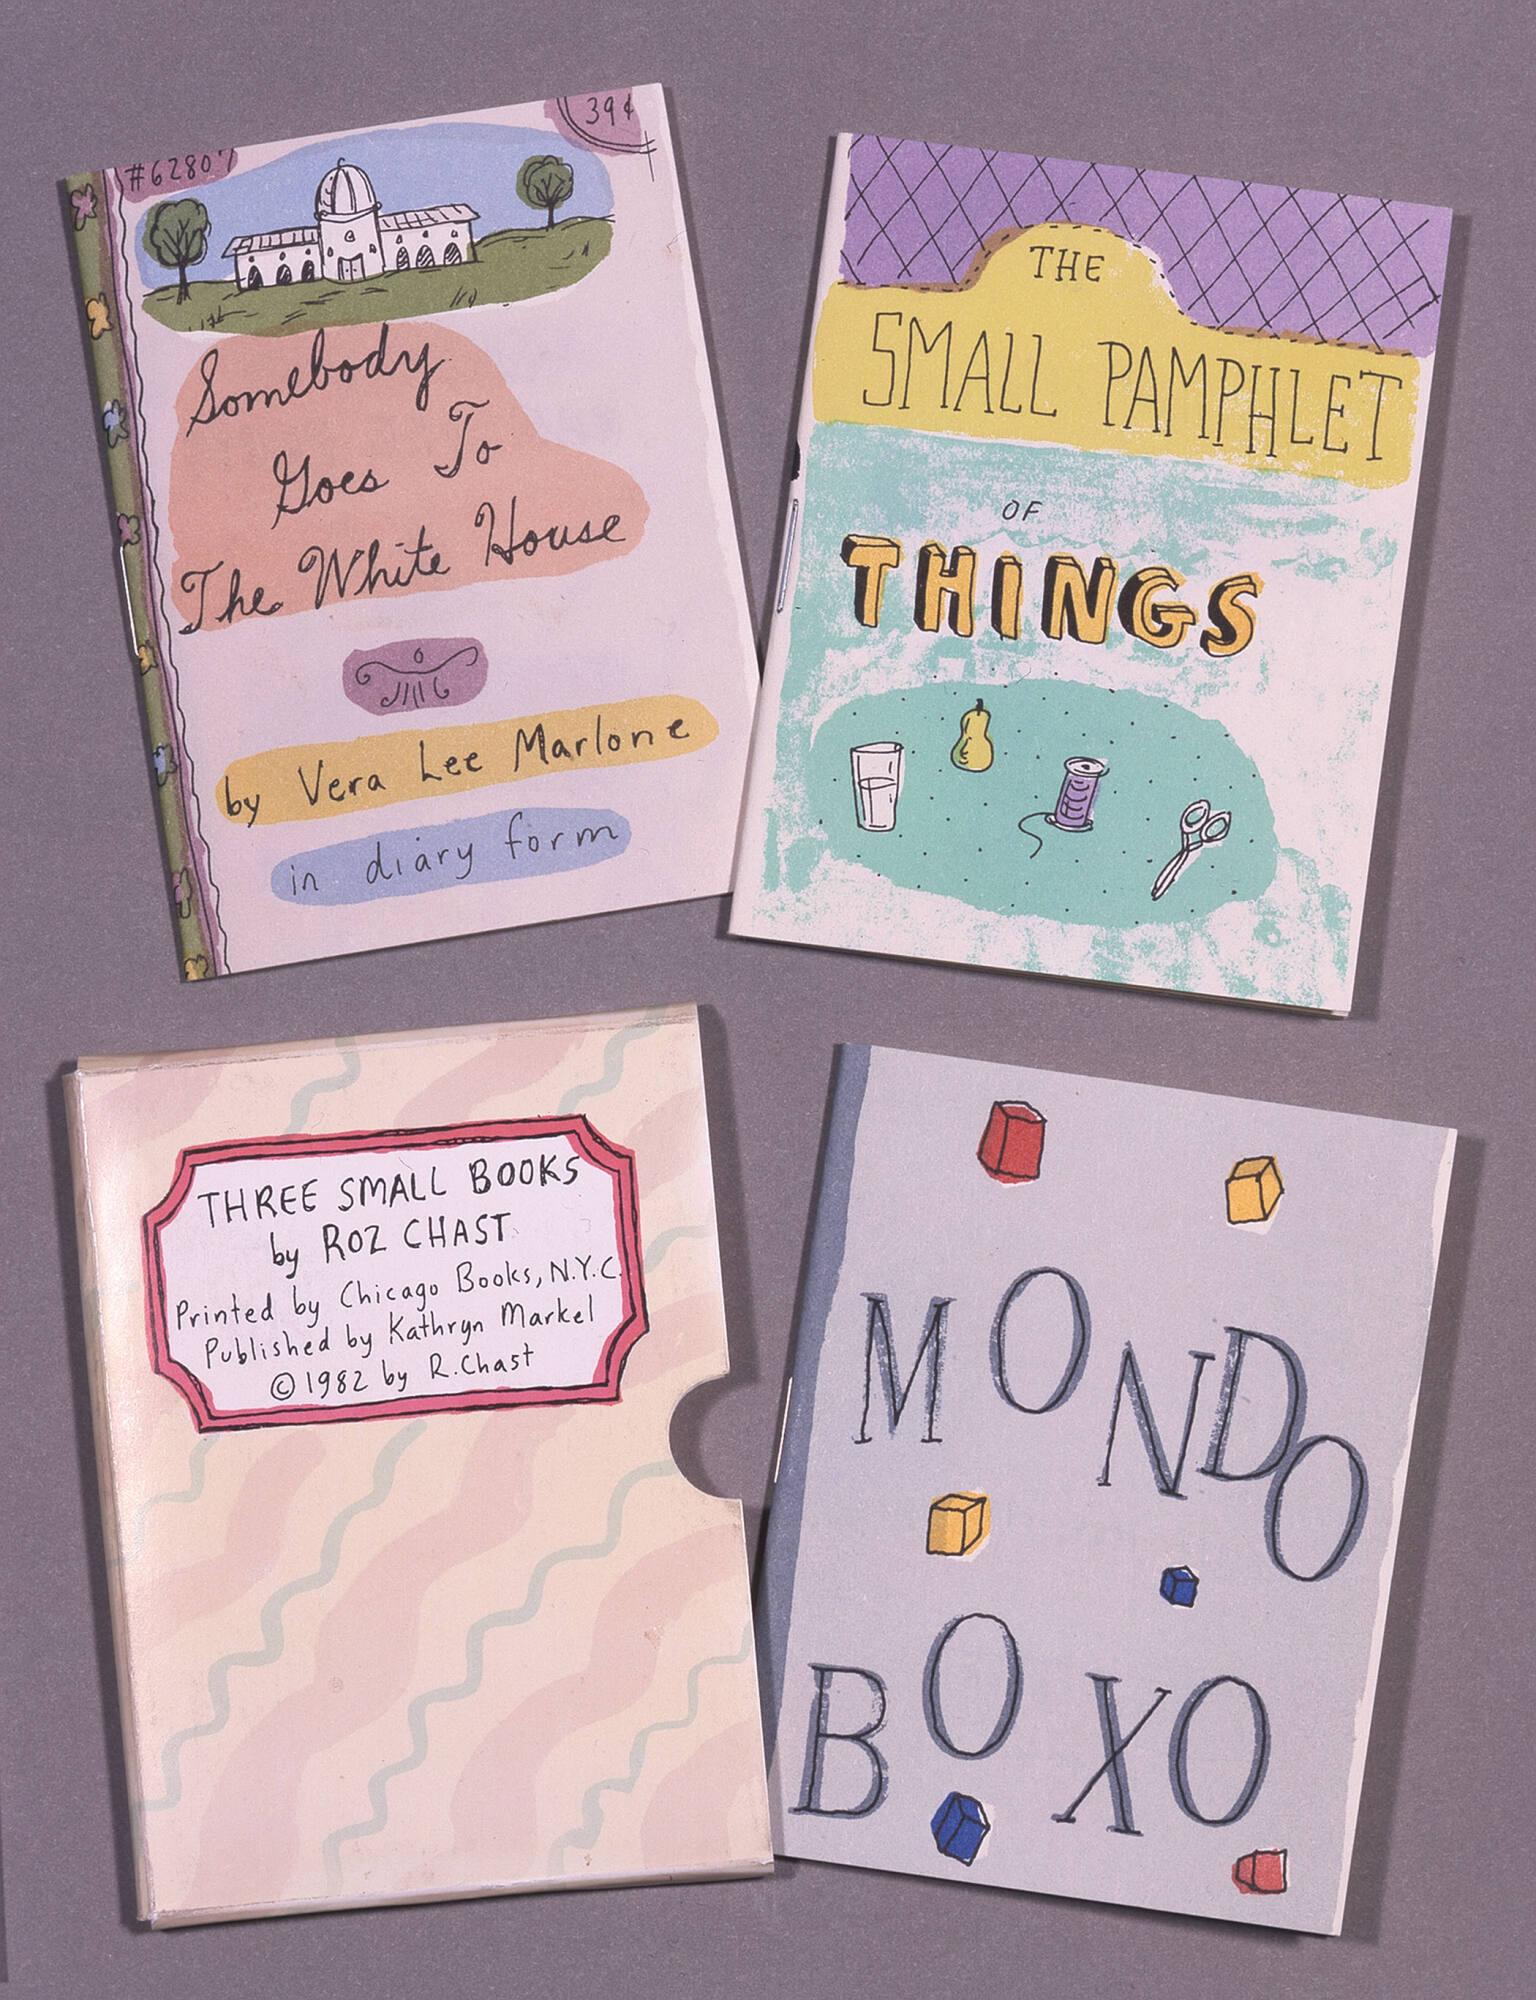 #62807
39¢
Somebody
Goes To
The White House
by Vera Lee Marlone
in diary form
THE
SMALL PAMPHLET
OF
THINGS
THREE SMALL BOOKS
by ROZ CHAST
Printed by Chicago Books, N.Y.C.
Published by Kathryn Markel
©1982 by R.Chast
MONDO
BOXO